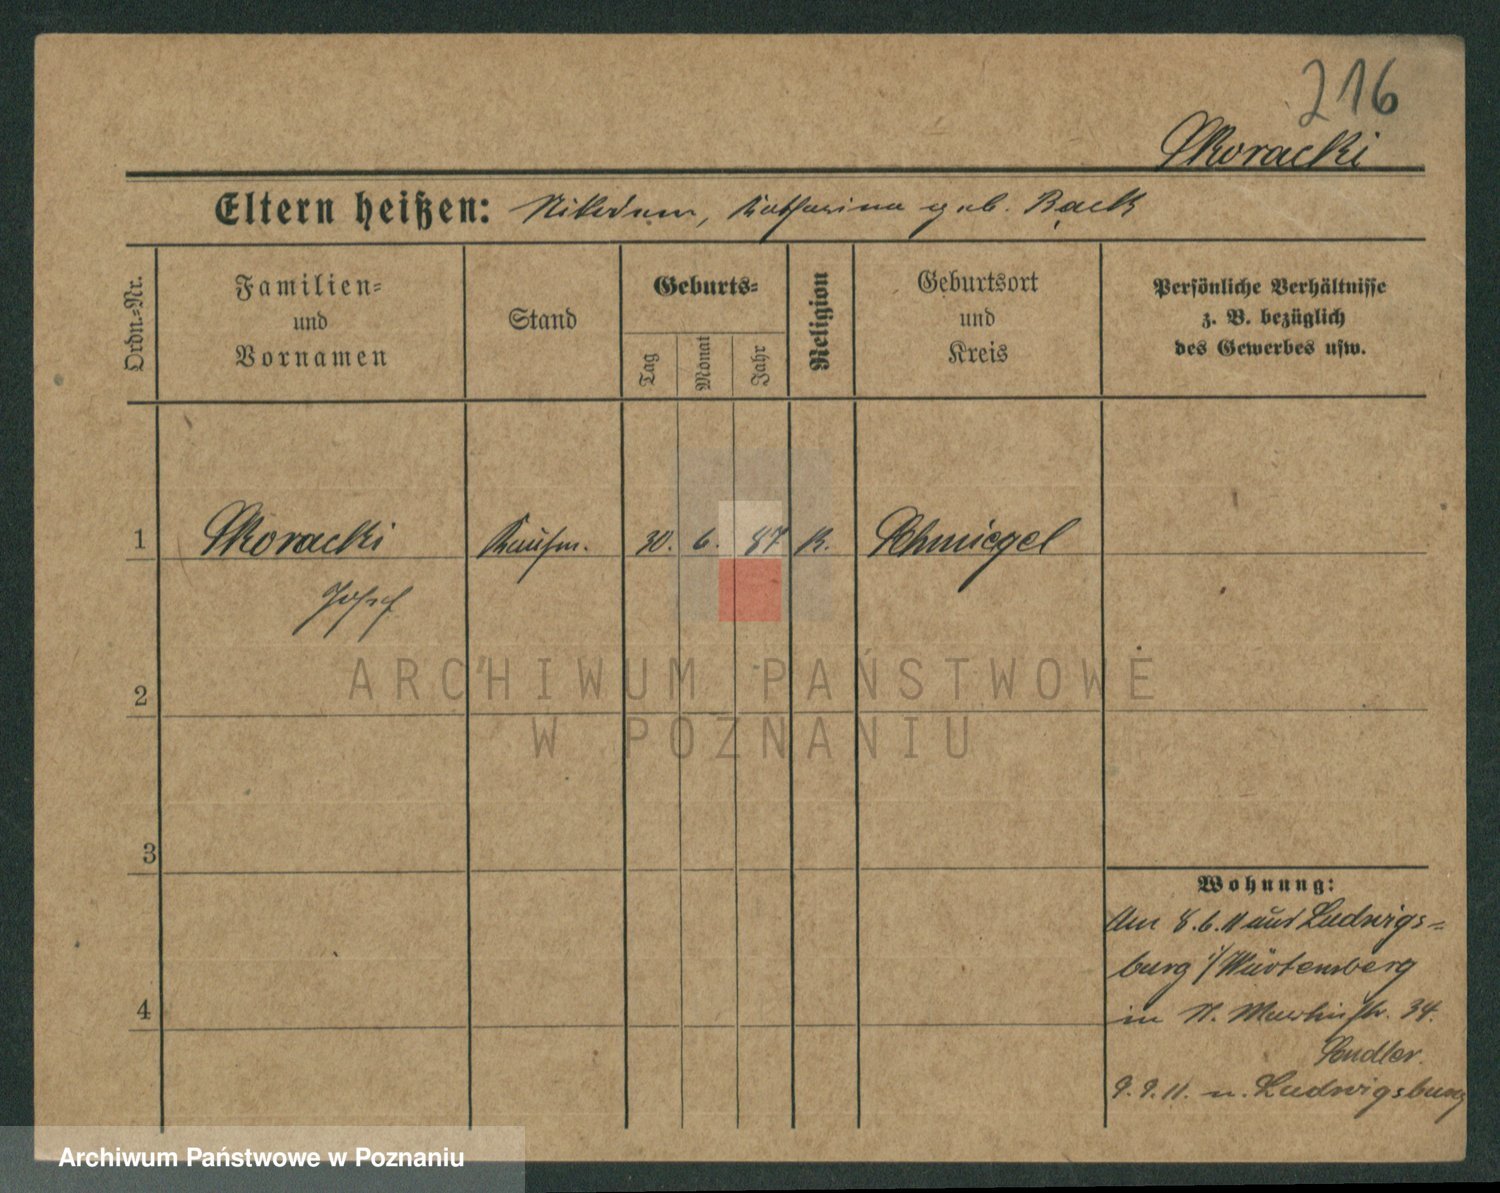 216
Skoracki
Eltern heißen: Nikodem, Katharina geb. Rack
Ordn.-Nr.
Familien-
und
Vornamen
Stand
Geburts-
Tag
Monat
Jahr
Religion
Geburtsort
und
Kreis
Persönliche Verhältnisse
z. B. bezüglich
des Gewerbes usw.
1 Skoracki Kaufm. 30. 6. 87 K. Schmiegel
Josef
2
3
4
Wohnung:
Am 8.6.11 aus Ludwigs-
burg i/Würtemberg
in St. Martinstr. 34.
Sendler.
9.9.11. n. Ludwigsburg
ARCHIWUM PAŃSTWOWE
W POZNANIU
Archiwum Państwowe w Poznaniu